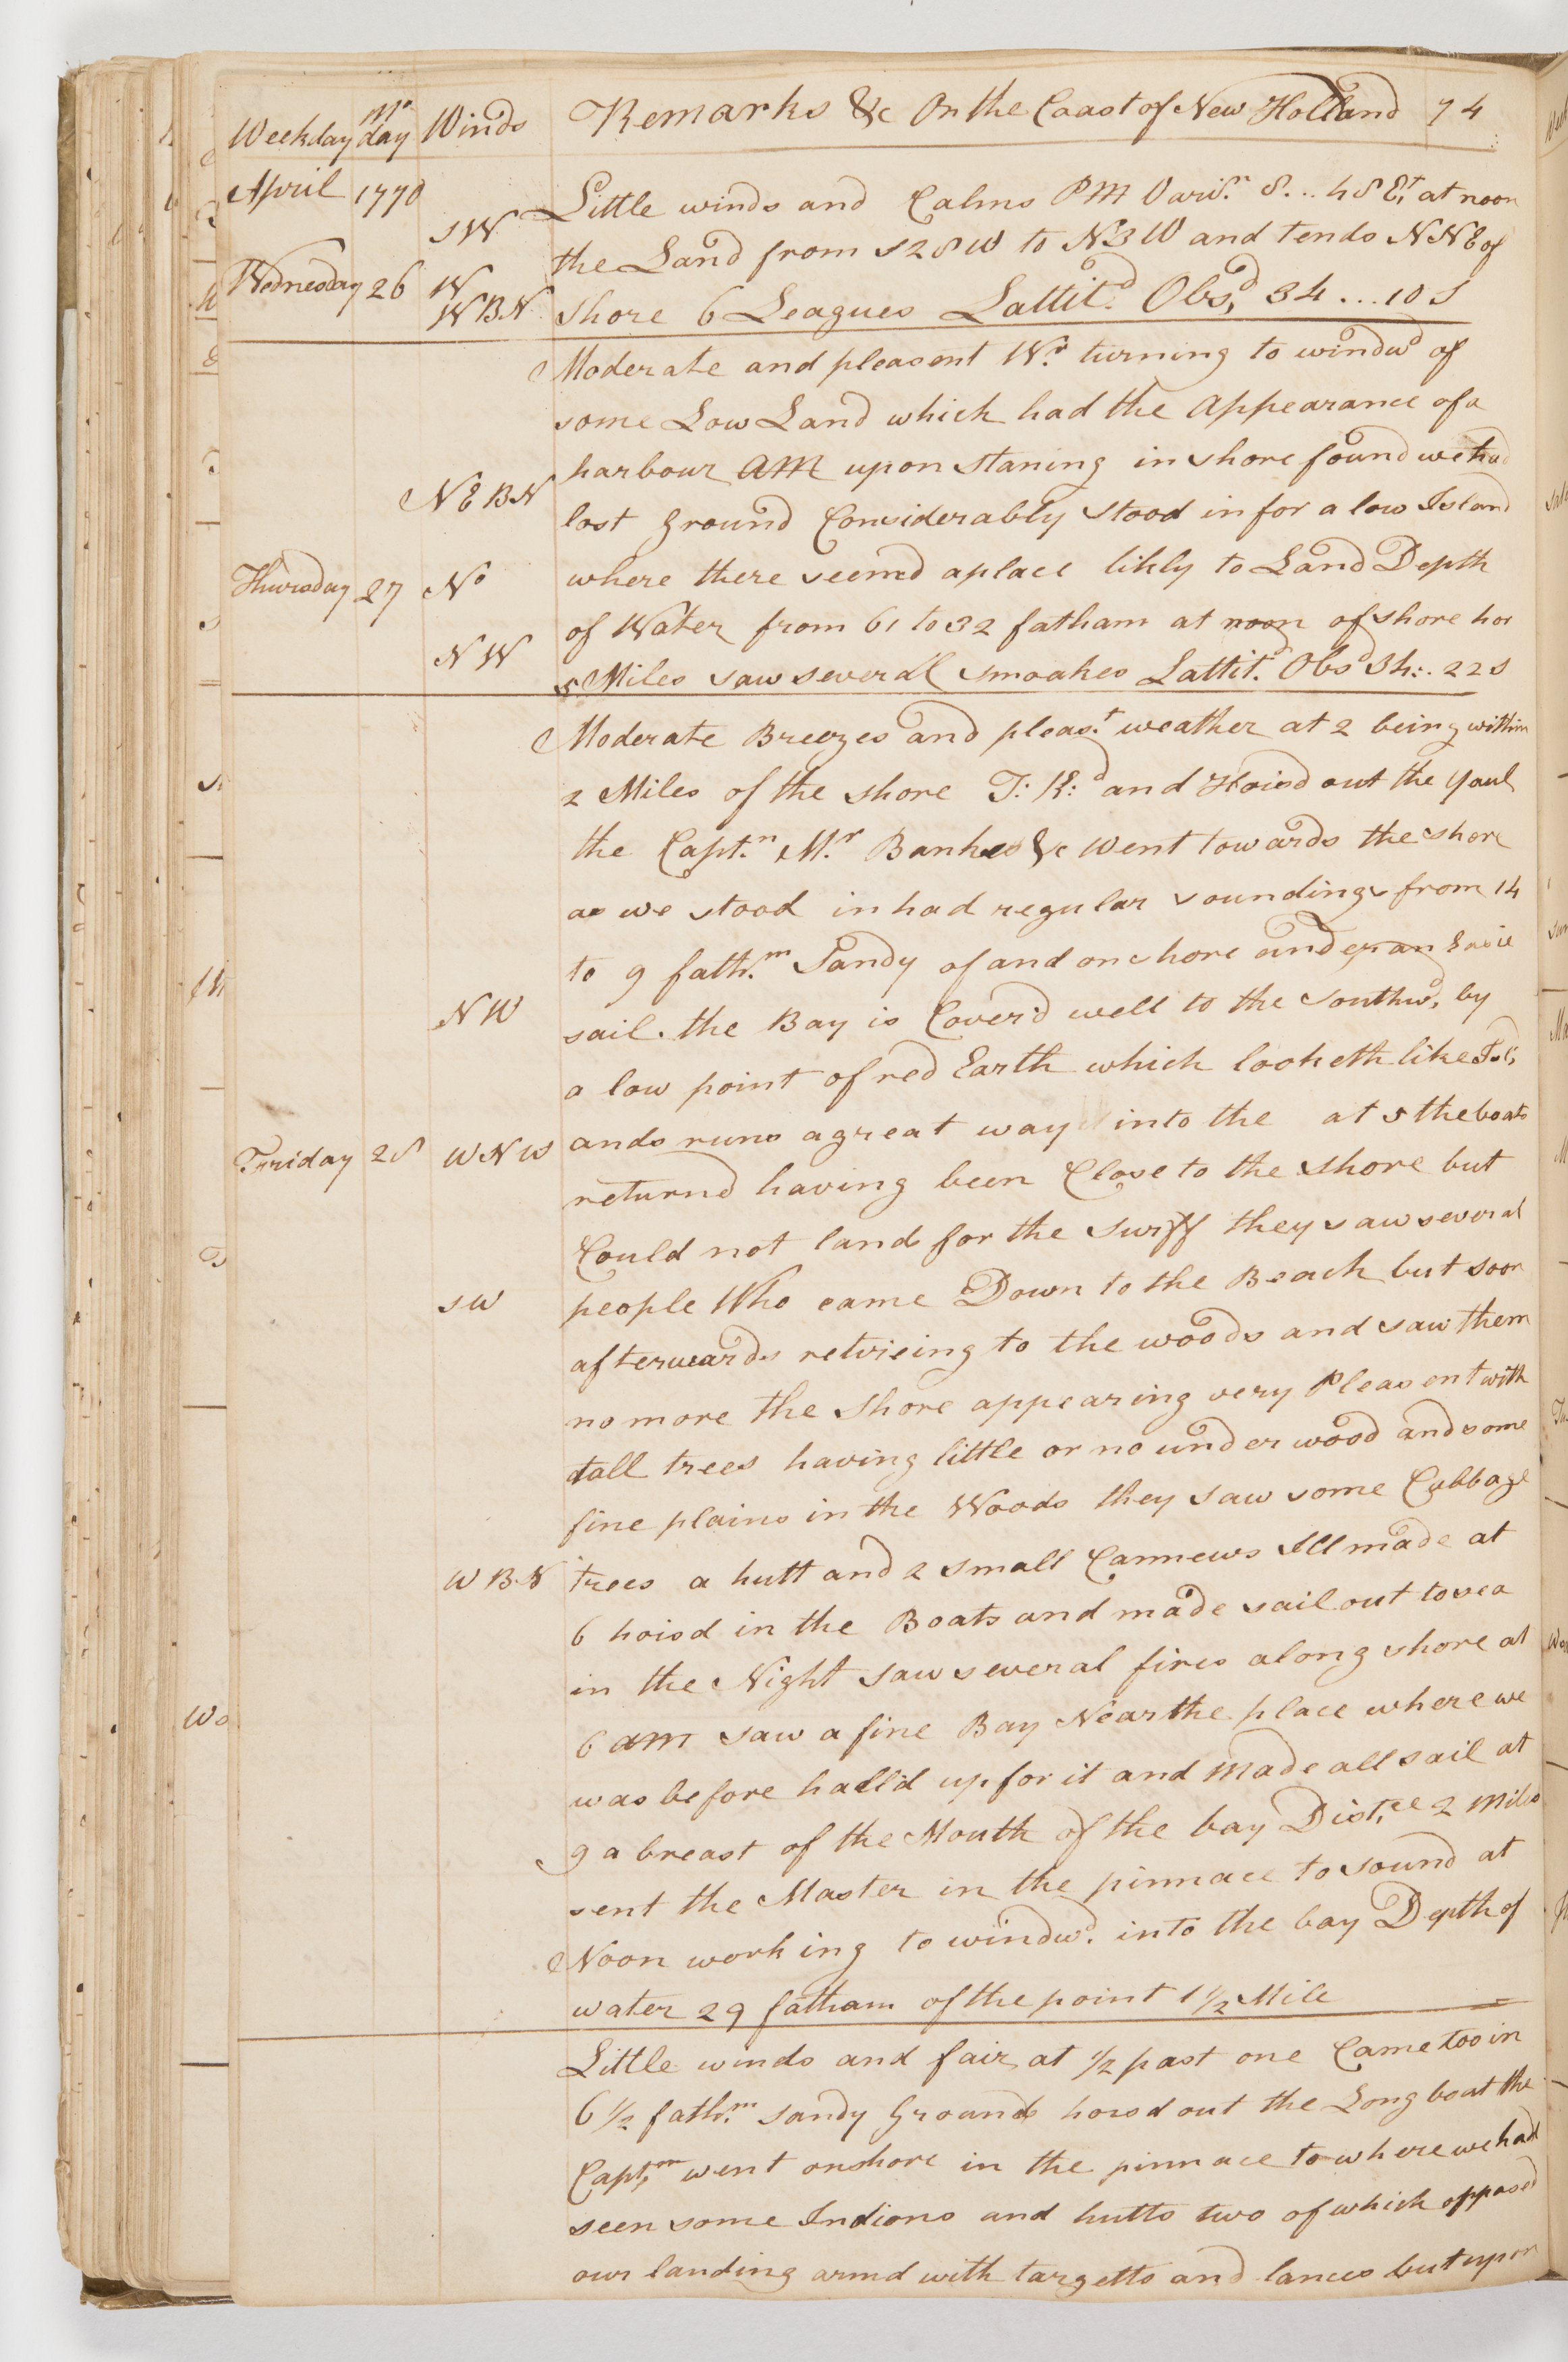 Weekday Mo day Winds Remarks &c On the Coast of New Holland 74
April 1770
Little winds and Calms PM Vari.n 8...48 E.t at noon
SW the Land from S28W to N3W and tends NNE of
Wednesday 26 W
WBN shore 6 Leagues Lattit.d Obs.d 34...10 S
Moderate and pleasent W.r turning to windw.d of
some Low Land which had the Appearance of a
harbour AM upon staning in shore found we had
NEBN lost ground Considerably stood in for a low Island
Thursday 27 No where there seemd a place likly to Land Depth
of Water from 61 to 32 fatham at noon of shore
NW 5 Miles saw severall smoakes Lattit.d Obs.d 34:.22 S
Moderate Breezes and pleas.t weather at 2 being within
2 Miles of the shore T:K:d and Hoisd out the Yaul
the Capt.n M.r Bankes &c Went towards the shore
as we stood in had regular soundings from 14
to 9 fath.m Sandy of and on shore under an Easie
NW sail. the Bay is Coverd well to the Southw.d by
a low point of red Earth which looketh like
Friday 28 WNW ands runs a great way into the at 5 the boats
returnd having been Close to the shore but
Could not land for the Surff they saw several
SW people Who came Down to the Beach but soon
afterwards retvieing to the woods and saw them
no more the Shore appearing very Pleasent with
tall trees having little or no under wood and some
fine plains in the Woods they saw some Cubbage
WBN trees a hutt and 2 small Cannews Ill made at
6 hoisd in the Boats and made sail out to sea
in the Night saw several fires along shore at
6 AM saw a fine Bay Near the place where we
was before halld up for it and made all sail at
9 a breast of the Mouth of the bay Dist.ce 2 Miles
sent the Master in the pinnace to sound at
Noon working to windw.d into the bay Depth of
water 29 fatham of the point 1 1/2 Mile
Little winds and fair at 1/2 past one Came too in
6 1/2 fath.m sandy Ground hoisd out the Long boat the
Capt.n went onshore in the pinnace to where we had
seen some Indions and hutts two of which opposed
our landing armd with targetts and lances but upon